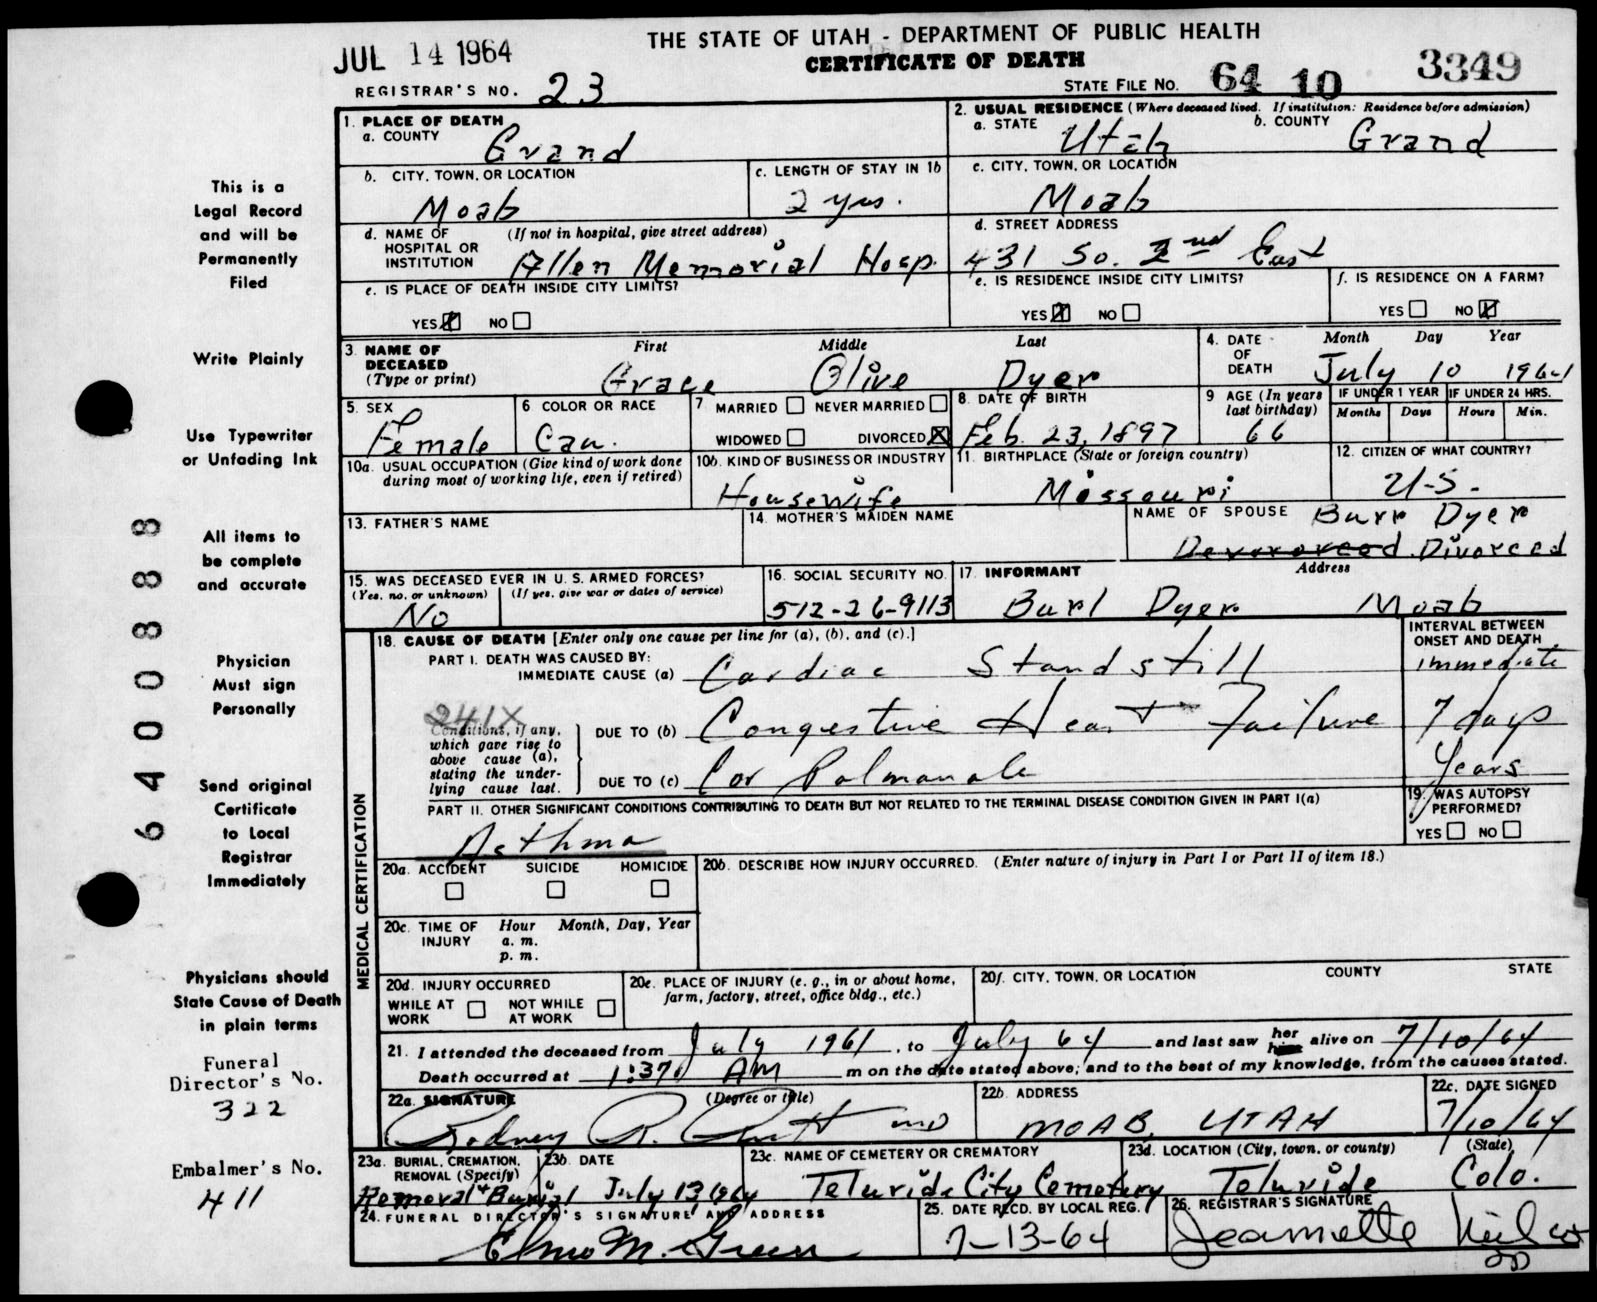 JUL 14 1964
THE STATE OF UTAH - DEPARTMENT OF PUBLIC HEALTH
CERTIFICATE OF DEATH
REGISTRAR'S NO. 23
STATE FILE NO. 64 10 3349
This is a
Legal Record
and will be
Permanently
Filed
Write Plainly
Use Typewriter
or Unfading Ink
All items to
be complete
and accurate
Physician
Must sign
Personally
Send original
Certificate
to Local
Registrar
Immediately
Physicians should
State Cause of Death
in plain terms
Funeral
Director's No.
322
Embalmer's No.
411
6400888
1. PLACE OF DEATH
a. COUNTY
Grand
2. USUAL RESIDENCE (Where deceased lived. If institution: Residence before admission)
a. STATE Utah b. COUNTY Grand
b. CITY, TOWN, OR LOCATION
Moab
c. LENGTH OF STAY IN 1b
2 yrs.
c. CITY, TOWN, OR LOCATION
Moab
d. NAME OF HOSPITAL OR INSTITUTION (If not in hospital, give street address)
Allen Memorial Hosp.
d. STREET ADDRESS
431 So. 2nd East
e. IS PLACE OF DEATH INSIDE CITY LIMITS?
YES X NO
e. IS RESIDENCE INSIDE CITY LIMITS?
YES X NO
f. IS RESIDENCE ON A FARM?
YES NO X
3. NAME OF DECEASED (Type or print)
First Middle Last
Grace Olive Dyer
4. DATE OF DEATH Month Day Year
July 10 1964
5. SEX
Female
6 COLOR OR RACE
Cau.
7 MARRIED NEVER MARRIED
WIDOWED DIVORCED X
8. DATE OF BIRTH
Feb. 23, 1897
9 AGE (In years last birthday)
66
IF UNDER 1 YEAR IF UNDER 24 HRS.
Months Days Hours Min.
10a. USUAL OCCUPATION (Give kind of work done during most of working life, even if retired)
10b. KIND OF BUSINESS OR INDUSTRY
Housewife
11. BIRTHPLACE (State or foreign country)
Missouri
12. CITIZEN OF WHAT COUNTRY?
U-S.
13. FATHER'S NAME
14. MOTHER'S MAIDEN NAME
NAME OF SPOUSE Burr Dyer
Divorced
15. WAS DECEASED EVER IN U.S. ARMED FORCES?
(Yes, no, or unknown) (If yes, give war or dates of service)
No
16. SOCIAL SECURITY NO.
512-26-9113
17. INFORMANT Address
Burl Dyer Moab
MEDICAL CERTIFICATION
18. CAUSE OF DEATH [Enter only one cause per line for (a), (b), and (c).]
INTERVAL BETWEEN ONSET AND DEATH
PART I. DEATH WAS CAUSED BY:
IMMEDIATE CAUSE (a) Cardiac Standstill immediate
241X
Conditions, if any, which gave rise to above cause (a), stating the underlying cause last.
DUE TO (b) Congestive Heart Failure 7 days
DUE TO (c) Cor Pulmonale Years
PART II. OTHER SIGNIFICANT CONDITIONS CONTRIBUTING TO DEATH BUT NOT RELATED TO THE TERMINAL DISEASE CONDITION GIVEN IN PART I(a)
Asthma
19. WAS AUTOPSY PERFORMED?
YES NO
20a. ACCIDENT SUICIDE HOMICIDE
20b. DESCRIBE HOW INJURY OCCURRED. (Enter nature of injury in Part I or Part II of item 18.)
20c. TIME OF INJURY Hour Month, Day, Year
a. m.
p. m.
20d. INJURY OCCURRED
WHILE AT WORK NOT WHILE AT WORK
20e. PLACE OF INJURY (e. g., in or about home, farm, factory, street, office bldg., etc.)
20f. CITY, TOWN, OR LOCATION COUNTY STATE
21. I attended the deceased from July 1961, to July 64 and last saw her him alive on 7/10/64
Death occurred at 1:37 AM m on the date stated above; and to the best of my knowledge, from the causes stated.
22a. SIGNATURE (Degree or title)
Rodney R. MD
22b. ADDRESS
MOAB, UTAH
22c. DATE SIGNED
7/10/64
23a. BURIAL, CREMATION, REMOVAL (Specify)
Removal + Burial
23b. DATE
July 13 1964
23c. NAME OF CEMETERY OR CREMATORY
Teluride City Cemetery
23d. LOCATION (City, town, or county) (State)
Teluride Colo.
24. FUNERAL DIRECTOR'S SIGNATURE AND ADDRESS
Elmo M. Green
25. DATE RECD. BY LOCAL REG.
7-13-64
26. REGISTRAR'S SIGNATURE
Jeannette